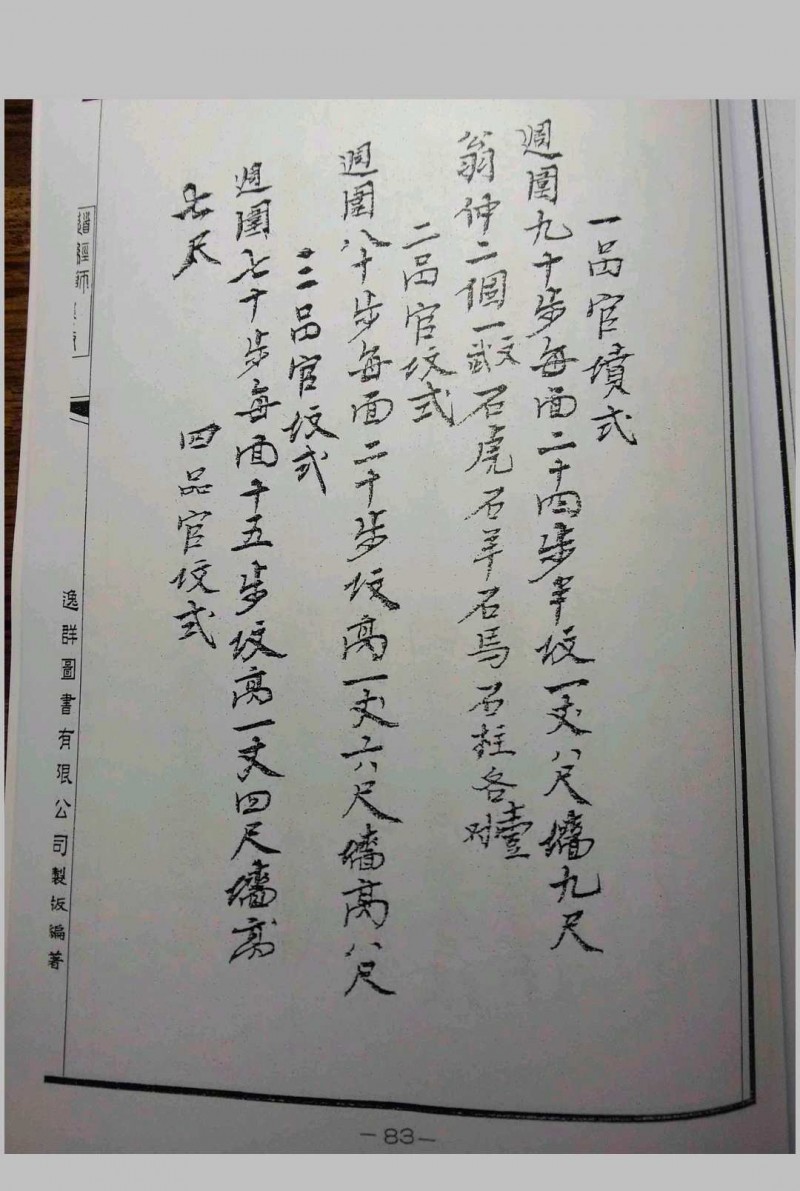 一品官墳式
週圍九十步每面二十四步半坟一丈八尺墻九尺
翁仲二個一文一武石虎石羊石馬石柱各壹对
二品官坟式
週圍八十步每面二十步坟高一丈六尺墻高八尺
三品官坟式
週圍七十步每面十五步坟高一丈四尺墻高
七尺
四品官坟式
逸群圖書有限公司製板編著
-83-